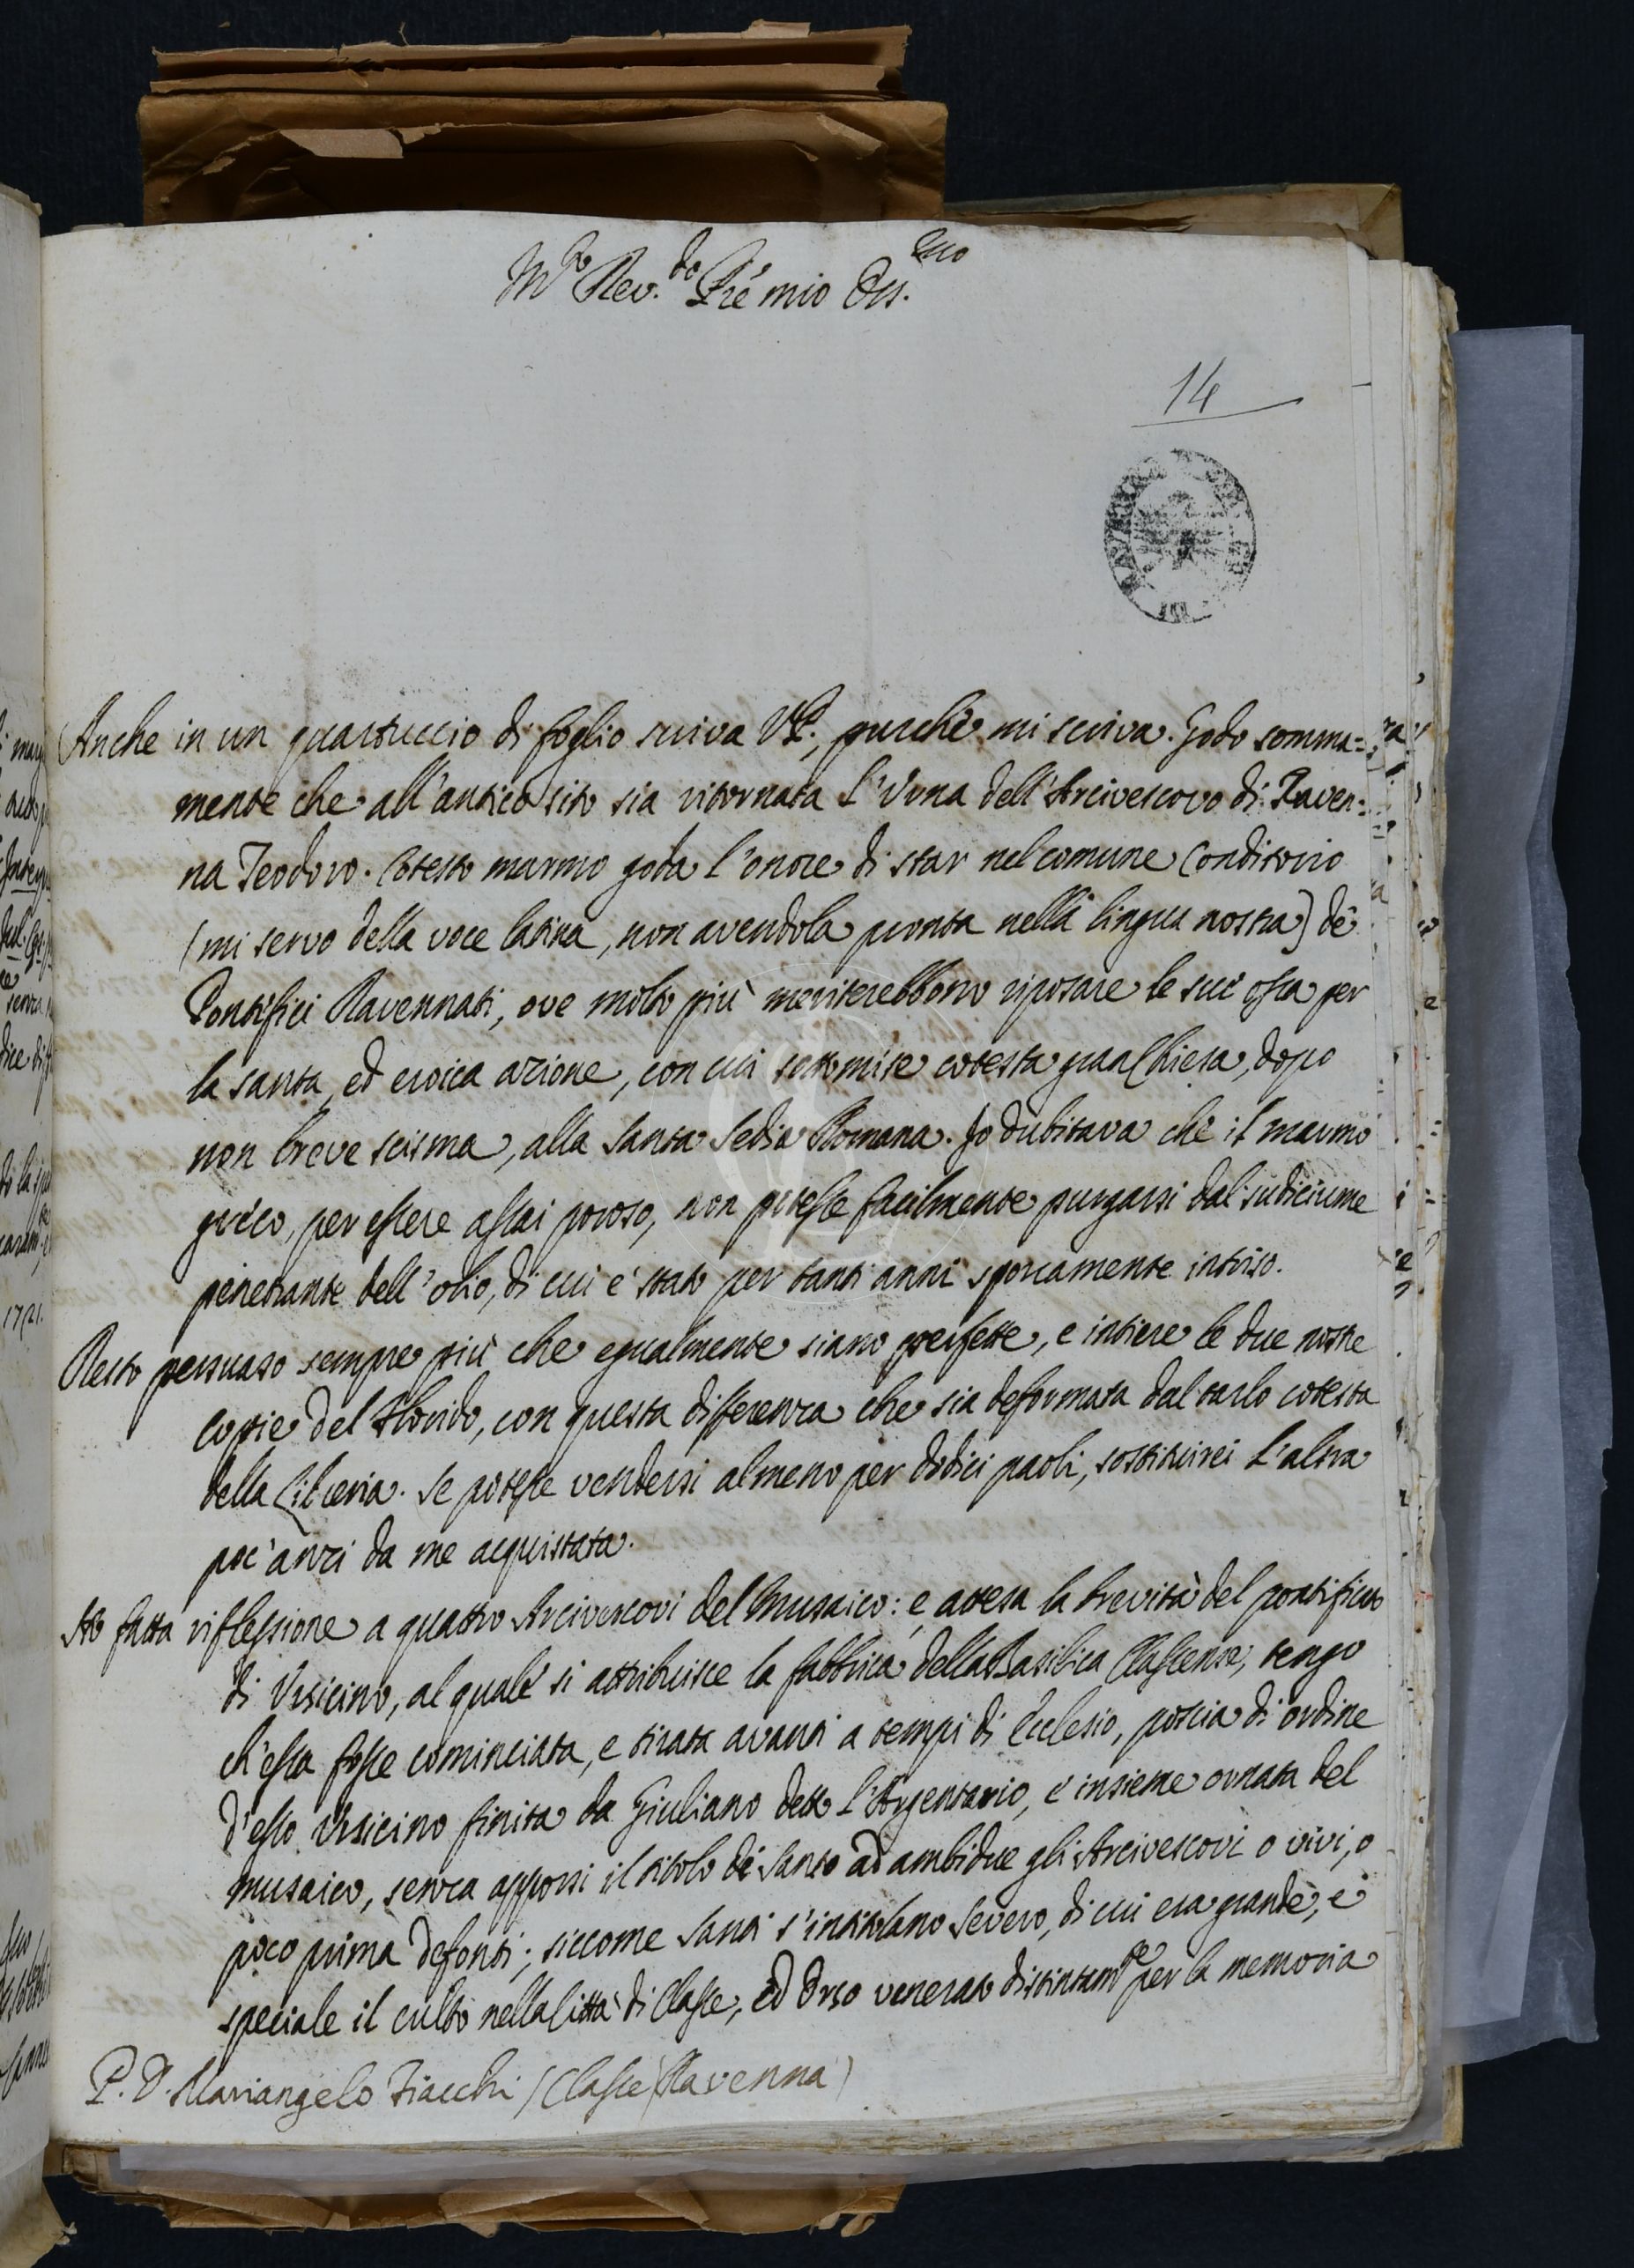 M.to Rev.do Pre mio Oss.mo
14
Anche in un quartuccio di foglio scriva V.P., purchè mi scriva. Godo somma=
mente che all'antico sito sia ritornata l'Urna dell'Arcivescovo di Raven=
na Teodoro. Cotesto marmo goda l'onore di star nel comune Conditorio
(mi servo della voce latina, non avendola pronta nella lingua nostra) de'
Pontefici Ravennati, ove molto più meriterebbono riposare le sue ossa per
la santa, ed eroica azione, con cui sottomise cotesta gran Chiesa, dopo
non breve scisma, alla Santa Sedia Romana. Io dubitava che il marmo
greco, per essere assai poroso, non potesse facilmente purgarsi dal sudiciume
penetrante dell'olio, di cui è stato per tanti anni sporcamente intriso.
Resto persuaso sempre più che egualmente siano perfette, e intiere le due nostre
copie del Florido, con questa differenza che sia deformata dal tarlo cotesta
della Libreria. Se potesse vendersi almeno per dodici paoli, sostituirei l'altra
poc'anzi da me acquistata.
Ho fatta riflessione a quattro Arcivescovi del Musaico: e attesa la brevità del pontificato
di Ursicino, al quale si attribuisce la fabbrica della Basilica Classense, tengo
ch'essa fosse cominciata, e tirata avanti a tempi di Ecclesio, poscia di ordine
d'esso Ursicino finita da Giuliano detto l'Argentario, e insieme ornata del
musaico, senza apporsi il titolo di Santo ad ambidue gli Arcivescovi o vivi, o
poco prima defonti; siccome Santi s'intitolano Severo, di cui era grande, e
speciale il culto nella Città di Classe, ed Orso venerato distintam.te per la memoria
P. D. Mariangelo Fiacchi (Classe) Ravenna)